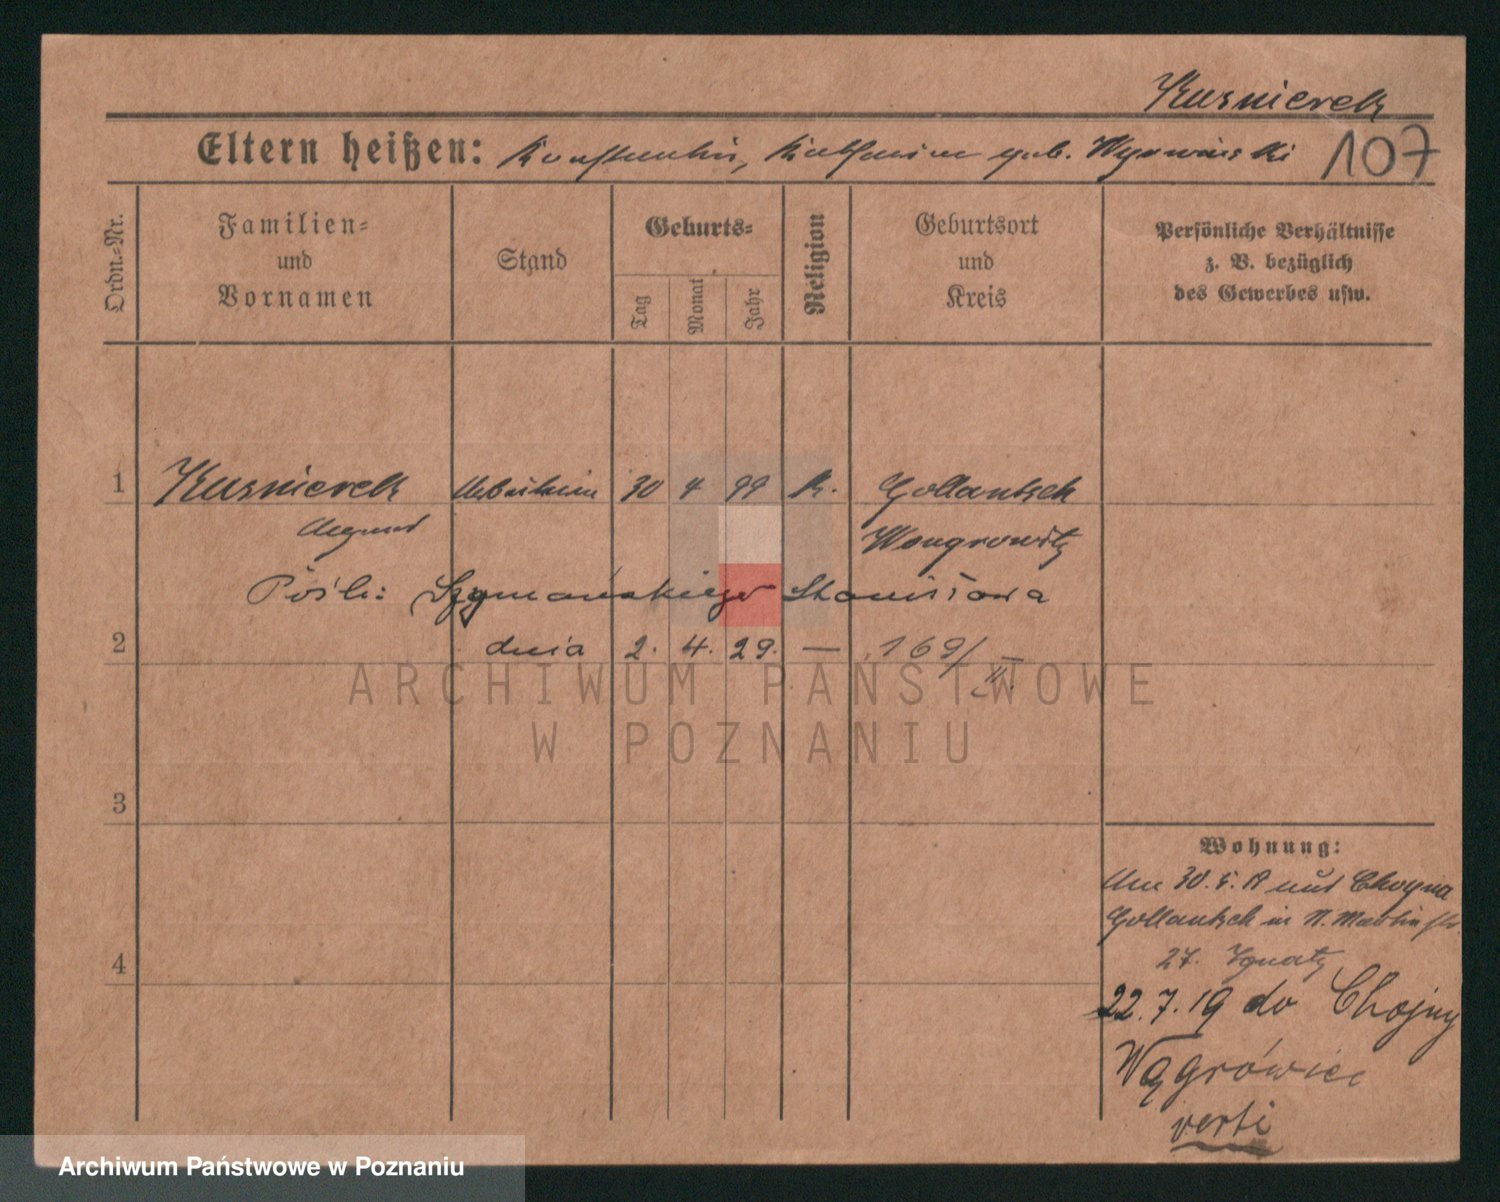 Kusnierek
Eltern heißen: Konstantin, Katharina geb. Wygowirski 107
Ordn.-Nr.
Familien-
und
Vornamen
Stand
Geburts-
Tag
Monat
Jahr
Religion
Geburtsort
und
Kreis
Persönliche Verhältnisse
z. B. bezüglich
des Gewerbes usw.
1 Kusnierek Arbeiterin 30 4 99 K. Gollantsch
Wongrowitz
Pośl: Szymańskiego Stanisława
2 dnia 2. 4. 29. — 169/II.
ARCHIWUM PAŃSTWOWE
W POZNANIU
3
4
Wohnung:
Am 30. 5. 19 aus Choyna
Gollantsch in St. Martinstr.
27. Ignatz
22.7.19 do Chojny
Wągrówiec
verti
Archiwum Państwowe w Poznaniu